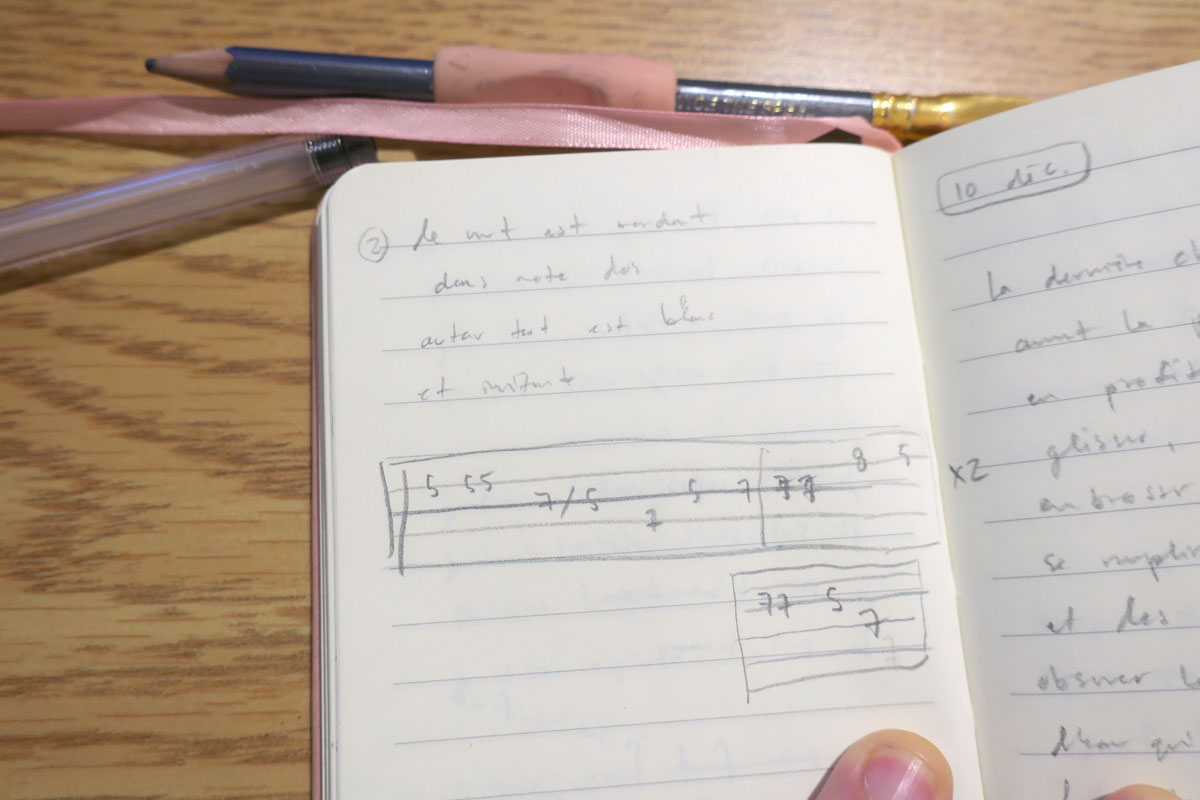 ② le vent est mordant
dans notre dos
autour tout est blanc
et invitant
5 55 7/5 7 5 7 77 8 5
x2
77 5 7
10 déc.
la dernière
avant la
en profit
glisser,
embrasser
se remplir
et des
observer